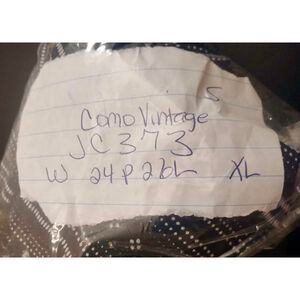 S
Como Vintage
JC373
W 24P 26L XL